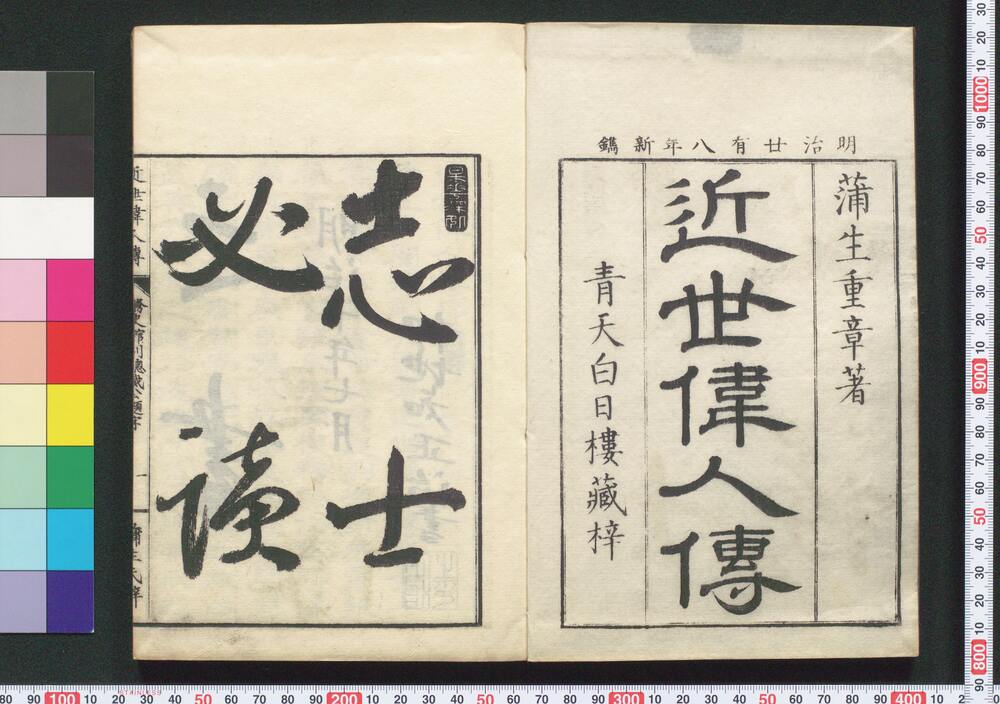 明治廿有八年新鐫
蒲生重章著
近世偉人傳
青天白日樓藏梓
志士
必讀
近世偉人傳